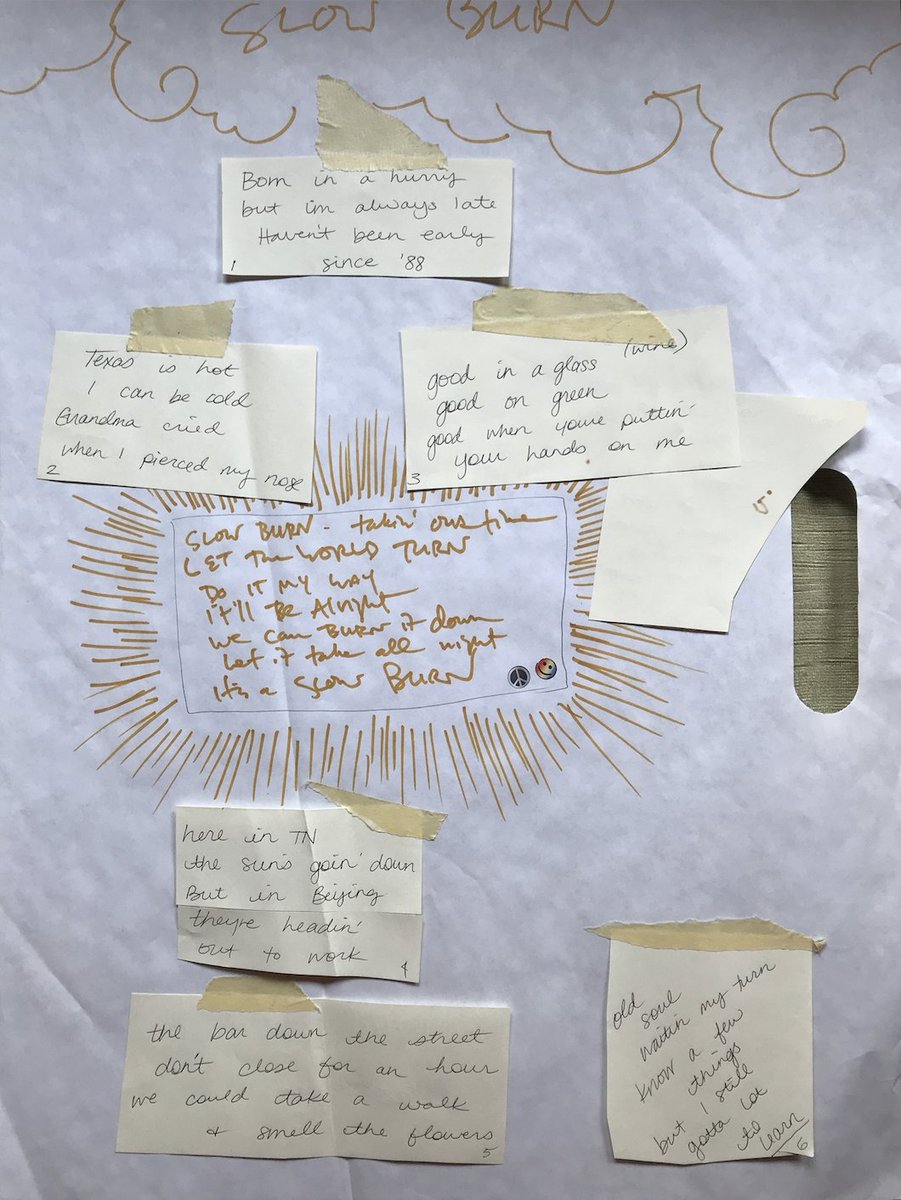 SLOW BURN
Born in a hurry
but i'm always late
Haven't been early
since '88
1
Texas is hot
I can be cold
Grandma cried
when I pierced my nose
2
(wine)
good in a glass
good on green
good when you're puttin'
your hands on me
3
SLOW BURN - takin' our time
LET THE WORLD TURN
DO IT MY WAY
it'll Be Alright
we can BURN it down
Let it take all night
it's a SLOW BURN
here in TN
the sun's goin' down
But in Beijing
they're headin'
out to work
4
the bar down the street
don't close for an hour
we could take a walk
& smell the flowers
5
old
soul
waitin my turn
know a few
things
but I still
gotta lot
to learn
6